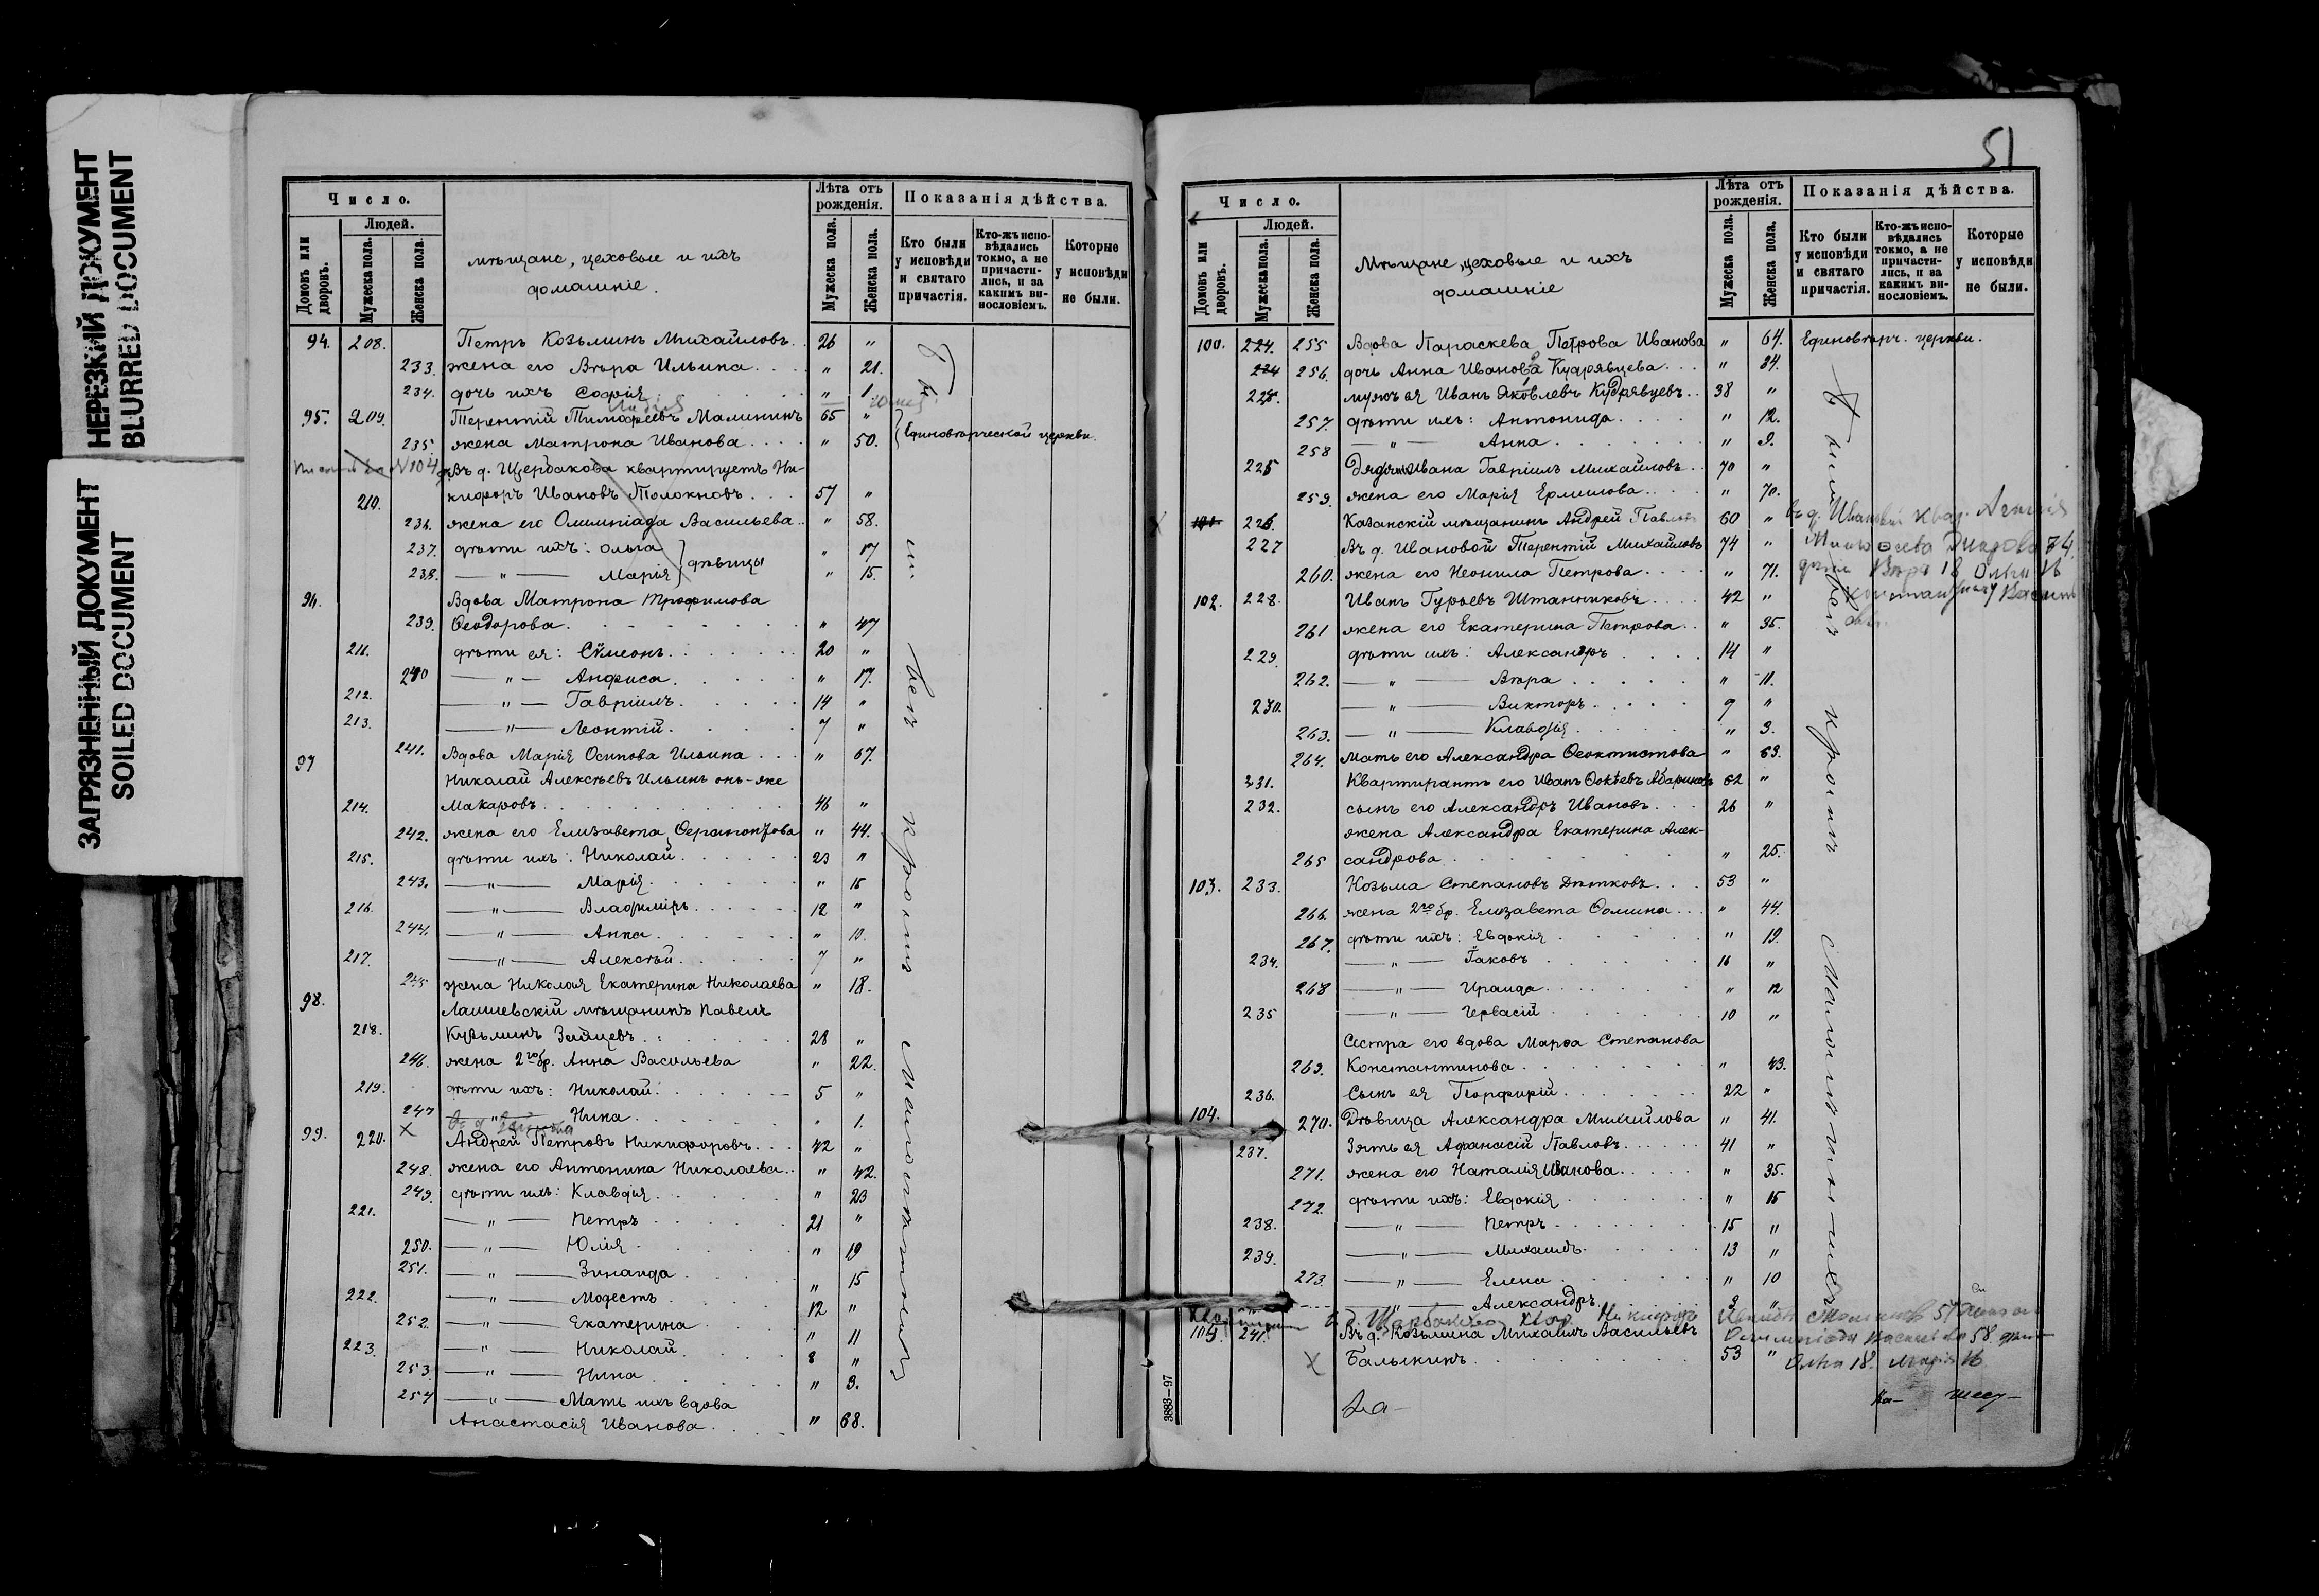 НЕРЕЗКИЙ ДОКУМЕНТ
BLURRED DOCUMENT
ЗАГРЯЗНЕННЫЙ ДОКУМЕНТ
SOILED DOCUMENT
Число.
Людей.
Домовъ или дворовъ.
Мужеска пола.
Женска пола.
мѣщане, цеховые и ихъ
домашніе.
Лѣта отъ рожденія.
Мужеска пола.
Женска пола.
Показанія дѣйства.
Кто были у исповѣди и святаго причастія.
Кто-жъ исповѣдались токмо, а не причастились, и за какимъ винословіемъ.
Которые у исповѣди не были.
94. 208. Петръ Козьминъ Михайловъ. 26 "
233. жена его Вѣра Ильина.... " 21.
234. дочь ихъ Софія " 1.
95. 209. Терентій Тимофеевъ Малининъ 65 " Единовѣрческой церкви.
235. жена Матрона Иванова.... " 50.
№104 Въ д. Щербакова квартируетъ Ни-
210. кифоръ Ивановъ Толокновъ... 57 "
236. жена его Олимпіада Васильева.. " 58.
237. дѣти ихъ: Ольга } дѣвицы " 17
238. — " — Марія " 15.
96. Вдова Матрона Трофимова
239. Ѳеодорова. " 47
211. дѣти ея: Симеонъ. 20 "
240 — " — Анфиса. " 17.
212. — " — Гавріилъ. 14 "
213. — " — Леонтій. 7 "
97 241. Вдова Марія Осипова Ильина... " 67.
Николай Алексѣевъ Ильинъ онъ-же
214. Макаровъ. 46 "
242. жена его Елизавета Ѳерапонтова " 44.
215. дѣти ихъ: Николай. 23 "
243. — " — Марія. " 15
216. — " — Владиміръ. 12 "
244. — " — Анна. " 10.
217. — " — Алексѣй. 7 "
245 жена Николая Екатерина Николаева " 18.
98. Лаишевскій мѣщанинъ Павелъ
218. Кузьминъ Зайцевъ. 28 "
246. жена 2го бр. Анна Васильева " 22.
219. дѣти ихъ: Николай. 5 "
247 — " — Нина. " 1.
99. 220. Андрей Петровъ Никифоровъ. 42 "
248. жена его Антонина Николаева.. " 42.
249. дѣти ихъ: Клавдія. " 23
221. — " — Петръ. 21 "
250. — " — Юлія " 19
251. — " — Зинаида " 15
222. — " — Модестъ 12 "
252. — " — Екатерина " 11
223. — " — Николай. 8 "
253. — " — Нина " 3.
254 — " — Мать ихъ вдова
Анастасія Иванова. " 68.
кромѣ малолѣтнихъ
51
Число.
Людей.
Домовъ или дворовъ.
Мужеска пола.
Женска пола.
Мѣщане, цеховые и ихъ
домашніе
Лѣта отъ рожденія.
Мужеска пола.
Женска пола.
Показанія дѣйства.
Кто были у исповѣди и святаго причастія.
Кто-жъ исповѣдались токмо, а не причастились, и за какимъ винословіемъ.
Которые у исповѣди не были.
100. 224. 255 Вдова Параскева Петрова Иванова " 64. Единовѣрч. церкви.
256. дочь Анна Иванова Кудрявцева... " 34.
мужъ ея Иванъ Яковлевъ Кудрявцевъ.. 38 "
257. дѣти ихъ: Антонида. " 12.
258 — " — Анна. " 9.
Гавріилъ Михайловъ.. 70 "
259. жена его Марія Ермилова.. " 70.
226. Казанскій мѣщанинъ Андрей Павловъ 60 "
227 Въ д. Ивановой Терентій Михайловъ 74 "
260. жена его Неонила Петрова.... " 71.
102. 228. Иванъ Гурьевъ Штанниковъ.... 42 "
261 жена его Екатерина Петрова.. " 35.
229. дѣти ихъ: Александръ.... 14 "
262. — " — Вѣра " 11.
230. — " — Викторъ 9 "
263. — " — Клавдія " 3.
264. мать его Александра Ѳеоктистова " 63.
231. Квартирантъ его Иванъ 62 "
232. сынъ его Александръ Ивановъ... 26 "
жена Александра Екатерина Алек-
265 сандрова " 25.
103. 233. Козьма Степановъ Дѣтковъ... 53 "
266. жена 2го бр. Елизавета Ѳомина... " 44.
267. дѣти ихъ: Евдокія " 19.
234. — " — Іаковъ 16 "
268 — " — Ираида. " 12
235 — " — Гервасій 10 "
Сестра его вдова Марѳа Степанова
269. Константинова " 43.
236. Сынъ ея Порфирій 22 "
104. 270. Дѣвица Александра Михайлова " 41.
237. Зять ея Афанасій Павловъ. 41 "
271. жена его Наталія Иванова. " 35.
272. дѣти ихъ: Евдокія " 15
238. — " — Петръ 15 "
239. — " — Михаилъ. 13 "
273. — " — Елена " 10
— " — Александръ. 3 "
241. Въ д. Козьмина Михаилъ Васильевъ
Балыкинъ. 53 "
кромѣ малолѣтнихъ
3883—97